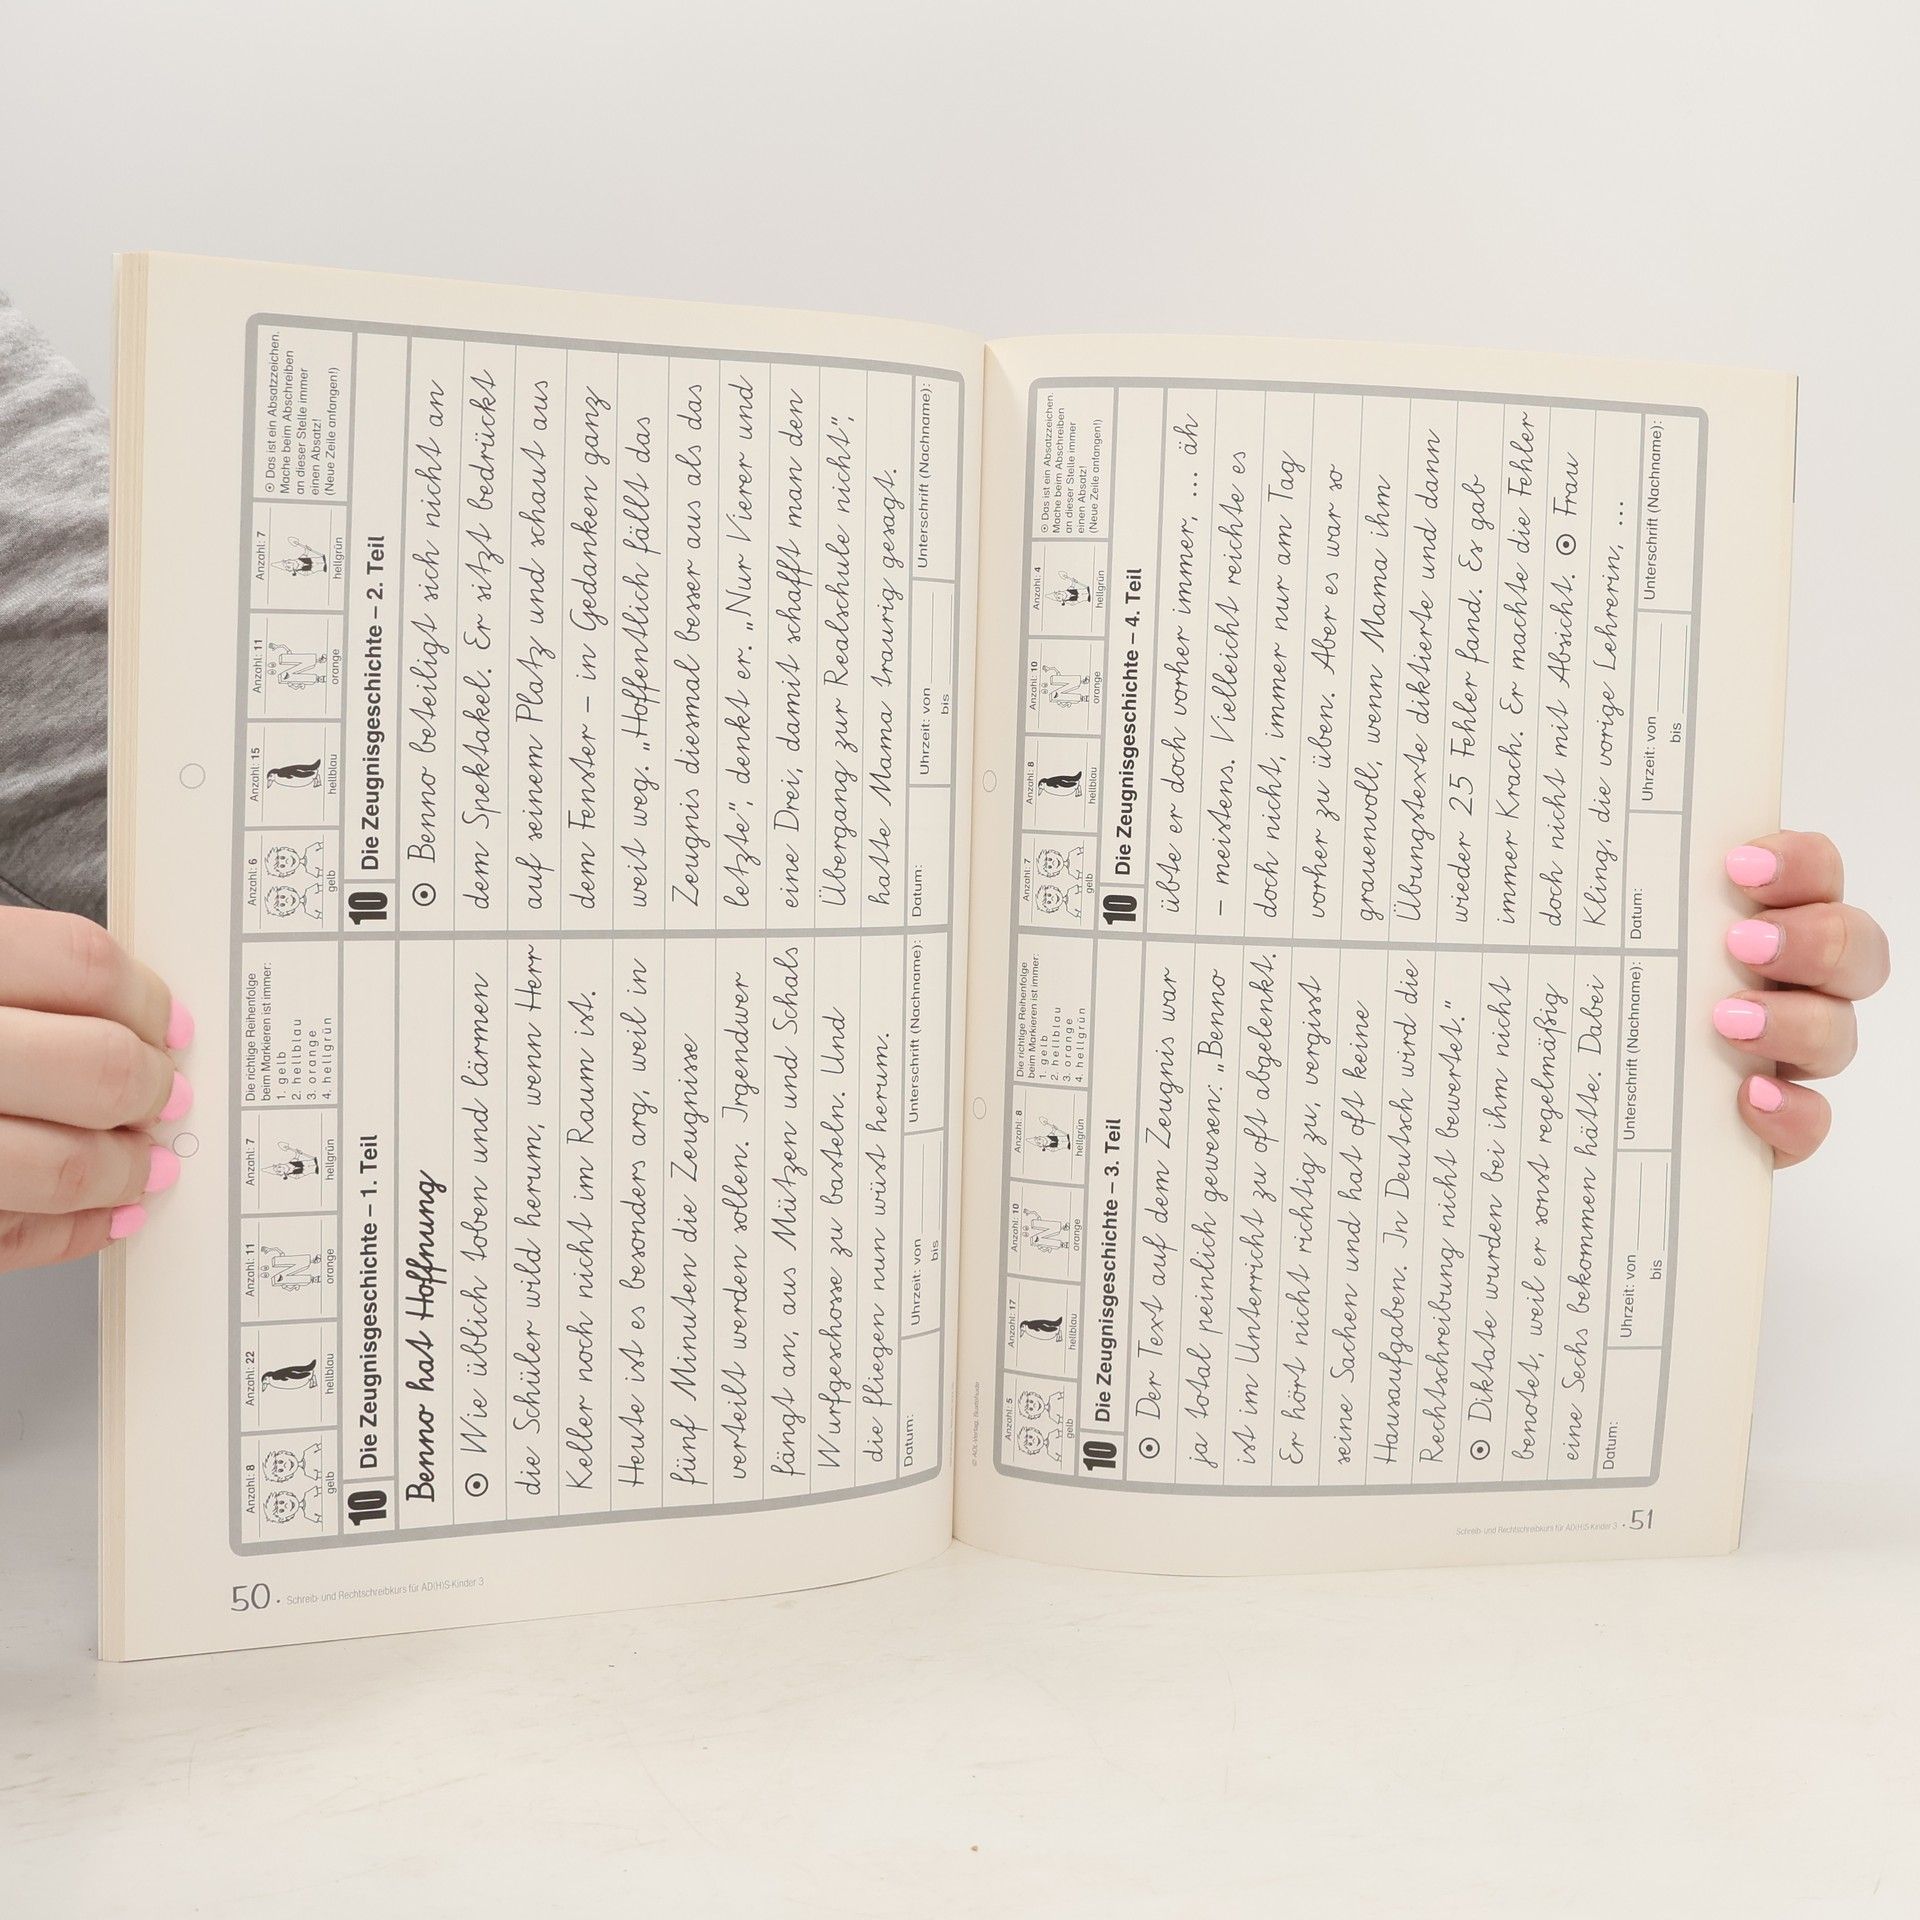 Anzahl: 8
gelb
Anzahl: 22
hellblau
Anzahl: 11
orange
Anzahl: 7
hellgrün
Die richtige Reihenfolge
beim Markieren ist immer:
1. gelb
2. hellblau
3. orange
4. hellgrün
10 Die Zeugnisgeschichte – 1. Teil
Benno hat Hoffnung
⊙ Wie üblich toben und lärmen
die Schüler wild herum, wenn Herr
Keller noch nicht im Raum ist.
Heute ist es besonders arg, weil in
fünf Minuten die Zeugnisse
verteilt werden sollen. Irgendwer
fängt an, aus Mützen und Schals
Wurfgeschosse zu basteln. Und
die fliegen nun wüst herum.
Datum:
Uhrzeit: von
bis
Unterschrift (Nachname):
Anzahl: 6
gelb
Anzahl: 15
hellblau
Anzahl: 11
orange
Anzahl: 7
hellgrün
⊙ Das ist ein Absatzzeichen.
Mache beim Abschreiben
an dieser Stelle immer
einen Absatz!
(Neue Zeile anfangen!)
10 Die Zeugnisgeschichte – 2. Teil
⊙ Benno beteiligt sich nicht an
dem Spektakel. Er sitzt bedrückt
auf seinem Platz und schaut aus
dem Fenster – in Gedanken ganz
weit weg. „Hoffentlich fällt das
Zeugnis diesmal besser aus als das
letzte“, denkt er. „Nur Vierer und
eine Drei, damit schafft man den
Übergang zur Realschule nicht“,
hatte Mama traurig gesagt.
Datum:
Uhrzeit: von
bis
Unterschrift (Nachname):
50 • Schreib- und Rechtschreibkurs für AD(H)S-Kinder 3
Anzahl: 5
gelb
Anzahl: 17
hellblau
Anzahl: 10
orange
Anzahl: 8
hellgrün
Die richtige Reihenfolge
beim Markieren ist immer:
1. gelb
2. hellblau
3. orange
4. hellgrün
10 Die Zeugnisgeschichte – 3. Teil
⊙ Der Text auf dem Zeugnis war
ja total peinlich gewesen: „Benno
ist im Unterricht zu oft abgelenkt.
Er hört nicht richtig zu, vergisst
seine Sachen und hat oft keine
Hausaufgaben. In Deutsch wird die
Rechtschreibung nicht bewertet.“
⊙ Diktate wurden bei ihm nicht
benotet, weil er sonst regelmäßig
eine Sechs bekommen hätte. Dabei
Datum:
Uhrzeit: von
bis
Unterschrift (Nachname):
Anzahl: 7
gelb
Anzahl: 8
hellblau
Anzahl: 10
orange
Anzahl: 4
hellgrün
⊙ Das ist ein Absatzzeichen.
Mache beim Abschreiben
an dieser Stelle immer
einen Absatz!
(Neue Zeile anfangen!)
10 Die Zeugnisgeschichte – 4. Teil
übte er doch vorher immer, ... äh
– meistens. Vielleicht reichte es
doch nicht, immer nur am Tag
vorher zu üben. Aber es war so
grauenvoll, wenn Mama ihm
Übungstexte diktierte und dann
wieder 25 Fehler fand. Es gab
immer Krach. Er machte die Fehler
doch nicht mit Absicht. ⊙ Frau
Kling, die vorige Lehrerin, ...
Datum:
Uhrzeit: von
bis
Unterschrift (Nachname):
© AOL-Verlag, Buxtehude
Schreib- und Rechtschreibkurs für AD(H)S-Kinder 3 • 51